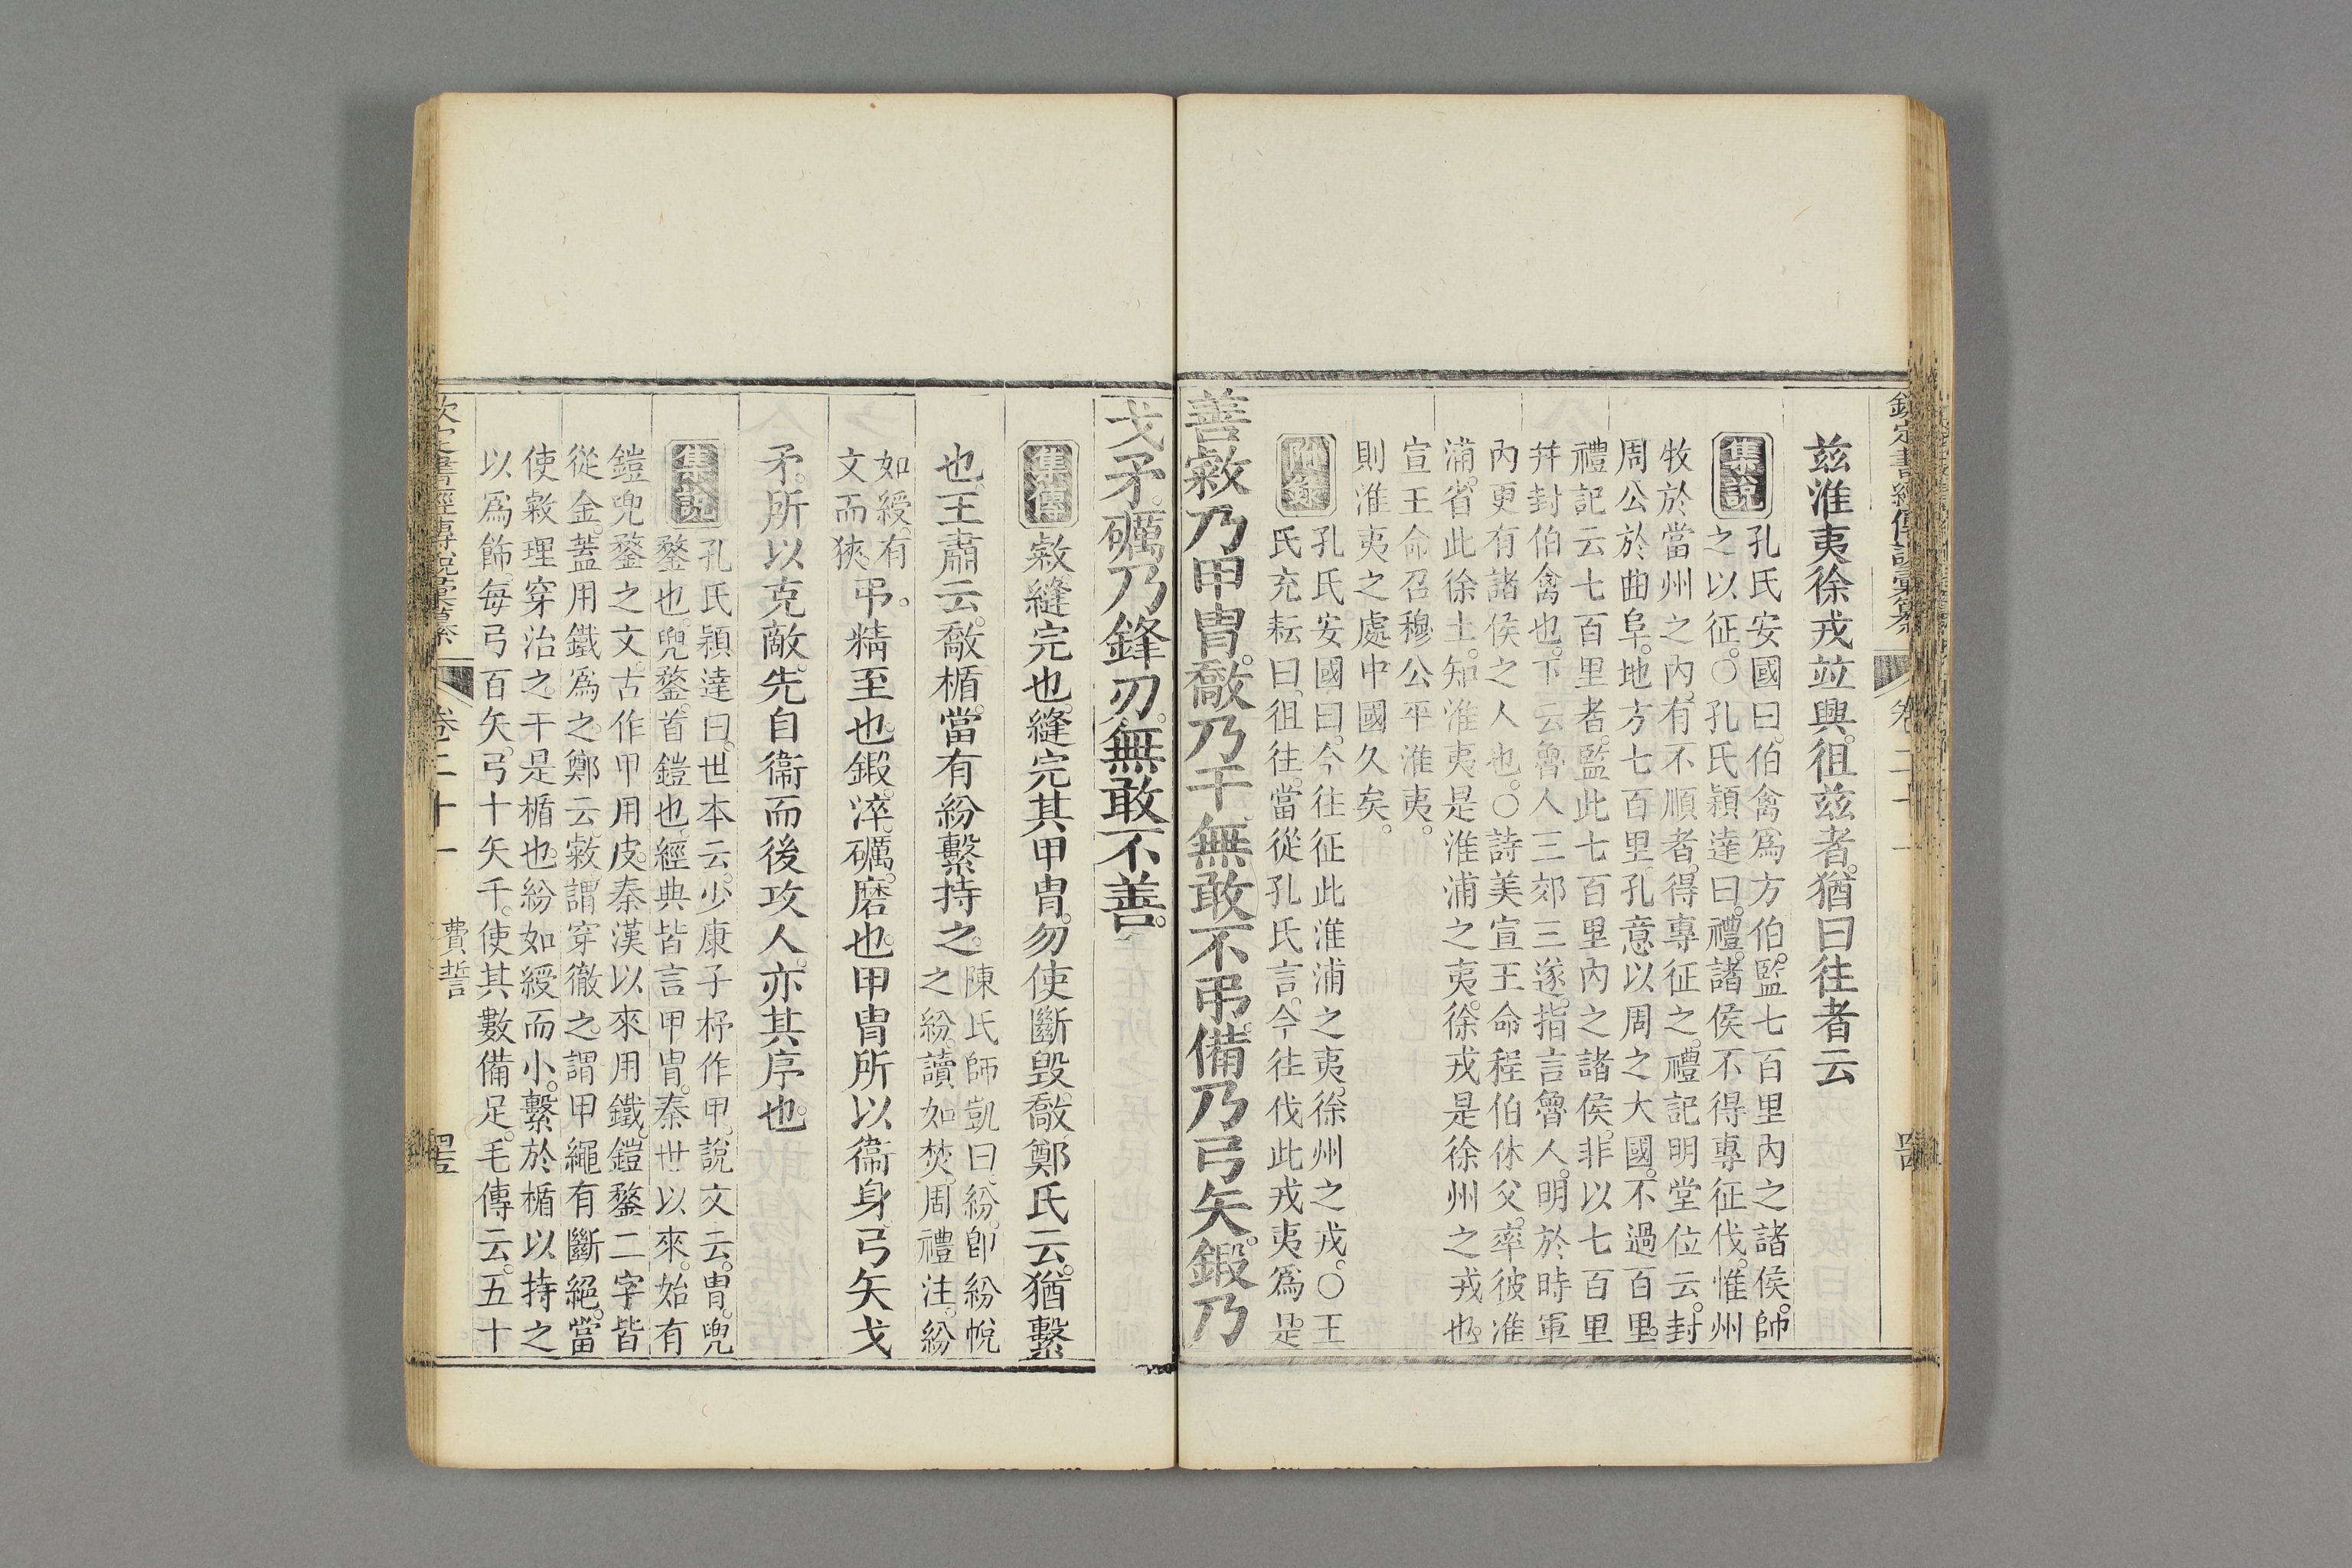 兹淮夷徐戎竝興。徂兹者。猶曰往者云
集說
孔氏安國曰。伯禽爲方伯。監七百里內之諸侯。帥
之以征。○孔氏穎達曰。禮。諸侯不得專征伐。惟州
牧於當州之內。有不順者。得專征之。禮記明堂位云。封
周公於曲阜。地方七百里。孔意以周之大國。不過百里。
禮記云七百里者。監此七百里內之諸侯。非以七百里
幷封伯禽也。下云魯人三郊三遂。指言魯人。明於時軍
內更有諸侯之人也。○詩美宣王命程伯休父。率彼淮
浦。省此徐土。知淮夷是淮浦之夷。徐戎是徐州之戎也。
宣王命召穆公平淮夷。
則淮夷之處中國久矣。
附錄
孔氏安國曰。今往征此淮浦之夷。徐州之戎。○王
氏充耘曰。徂往。當從孔氏言。今往伐此戎夷爲是。
善敹乃甲冑。敿乃干。無敢不弔。備乃弓矢。鍛乃
戈矛。礪乃鋒刃。無敢不善。
集傳
敹。縫完也。縫完其甲冑。勿使斷毀。敿。鄭氏云。猶繫
也。王肅云。敿楯。當有紛繫持之。
陳氏師凱曰。紛。卽紛帨
之紛。讀如焚。周禮注。紛
如綬。有
文而狹。
弔。精至也。鍛。淬。礪。磨也。甲冑所以衞身。弓矢戈
矛。所以克敵。先自衞而後攻人。亦其序也。
集說
孔氏穎達曰。世本云。少康子杼作甲。說文云。冑。兜
鍪也。兜鍪。首鎧也。經典皆言甲冑。秦世以來。始有
鎧兜鍪之文。古作甲用皮。秦漢以來用鐵。鎧鍪二字皆
從金。蓋用鐵爲之。鄭云。敹謂穿徹之。謂甲繩有斷絕。當
使敹理穿治之。干是楯也。紛如綬而小。繫於楯以持之
以爲飾。每弓百矢。弓十矢千。使其數備足。毛傳云。五十
欽定書經傳說彙纂
卷二十一
費誓